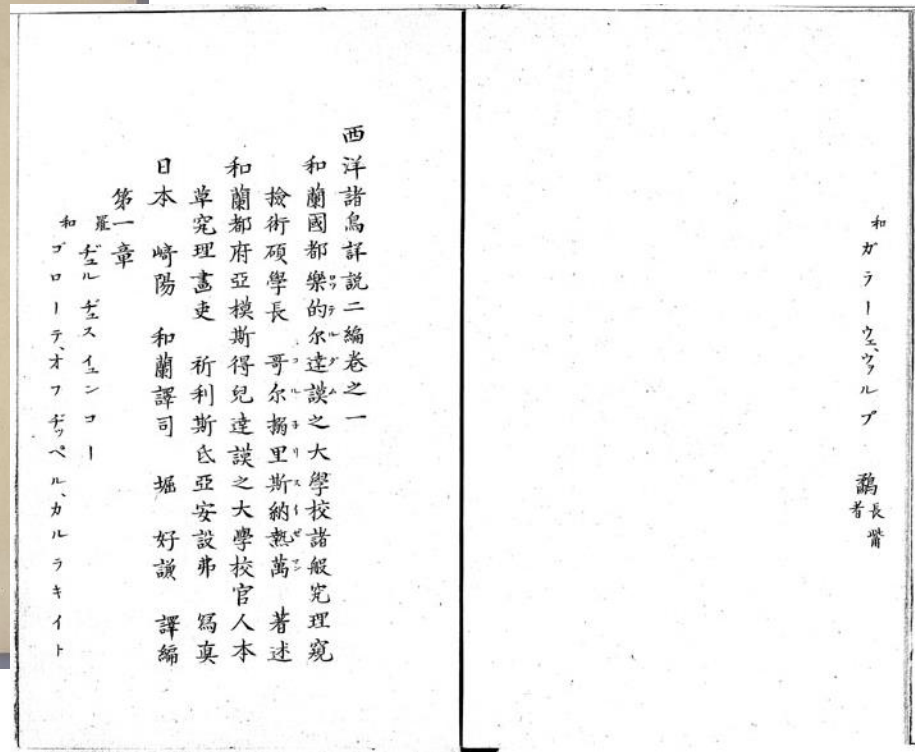 和 ガラーウェ、ヴァルプ 鷸長觜者
西洋諸鳥詳説二編巻之一
和蘭國都樂的尔達謨之大學校諸般究理窺
撿術碩學長 哥尔搦里斯納熱萬 著述
和蘭都府亞模斯得兒達謨之大學校官人本
草究理畫吏 祈利斯氐亞安設弗 寫真
日本 崎陽 和蘭譯司 堀 好謙 譯編
第一章
羅 ヂュルヂェスイュンコー
和 ゴローテ、オフヂッペル、カルラキイト